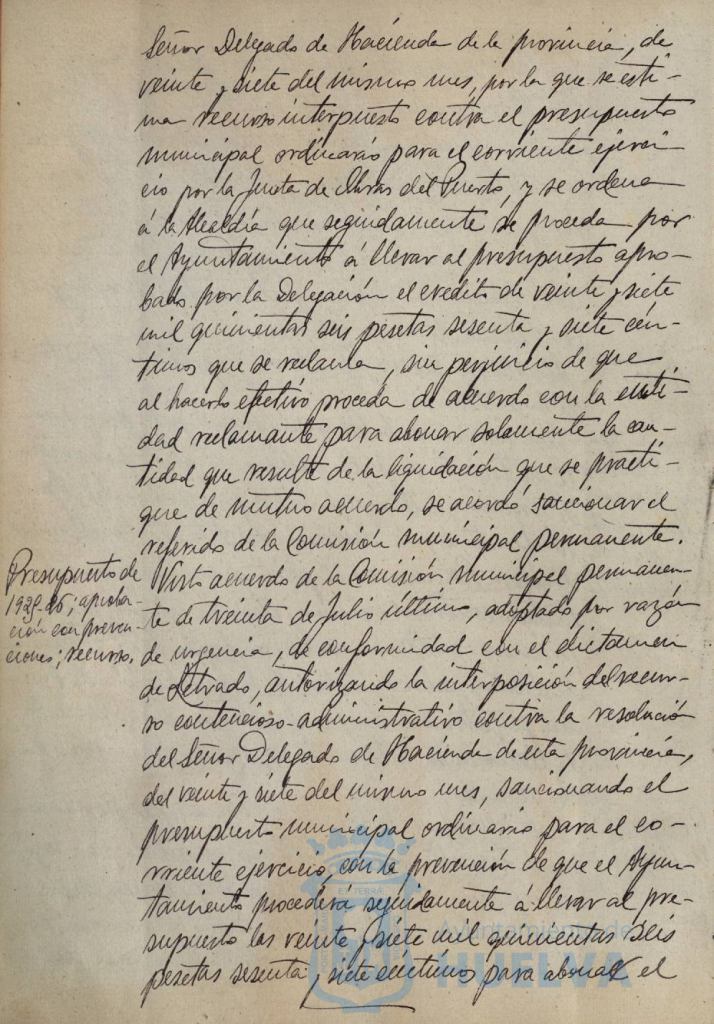 Señor Delegado de Hacienda de la provincia, de
veinte y siete del mismo mes, por la que se esti-
ma recurso interpuesto contra el presupuesto
municipal ordinario para el corriente ejerci-
cio por la Junta de Obras del Puerto, y se ordena
á la Alcaldía que seguidamente se proceda por
el Ayuntamiento á llevar al presupuesto apro-
bado por la Delegación el credito de veinte y siete
mil quinientas seis pesetas sesenta y siete cén-
timos que se reclama, sin perjuicio de que
al hacerlo efectivo proceda de acuerdo con la enti-
dad reclamante para abonar solamente la can-
tidad que resulte de la liquidación que se practi-
que de mutuo acuerdo, se acordó sancionar el
referido de la Comisión municipal permanente.
Presupuesto de
1925-26; aproba-
ción con preven-
ciones; recurso.
Visto acuerdo de la Comisión municipal permanen-
te de treinta de Julio último, adoptado por razón
de urgencia, de conformidad con el dictamen
de Letrado, autorizando la interposición del recur-
so contencioso-administrativo contra la resolución
del Señor Delegado de Hacienda de esta provincia,
del veinte y siete del mismo mes, sancionando el
presupuesto municipal ordinario para el co-
rriente ejercicio, con la prevención de que el Ayun-
tamiento procederá seguidamente á llevar al pre-
supuesto las veinte y siete mil quinientas seis
pesetas sesenta y siete céntimos para abonar el
Ayuntamiento de
HUELVA